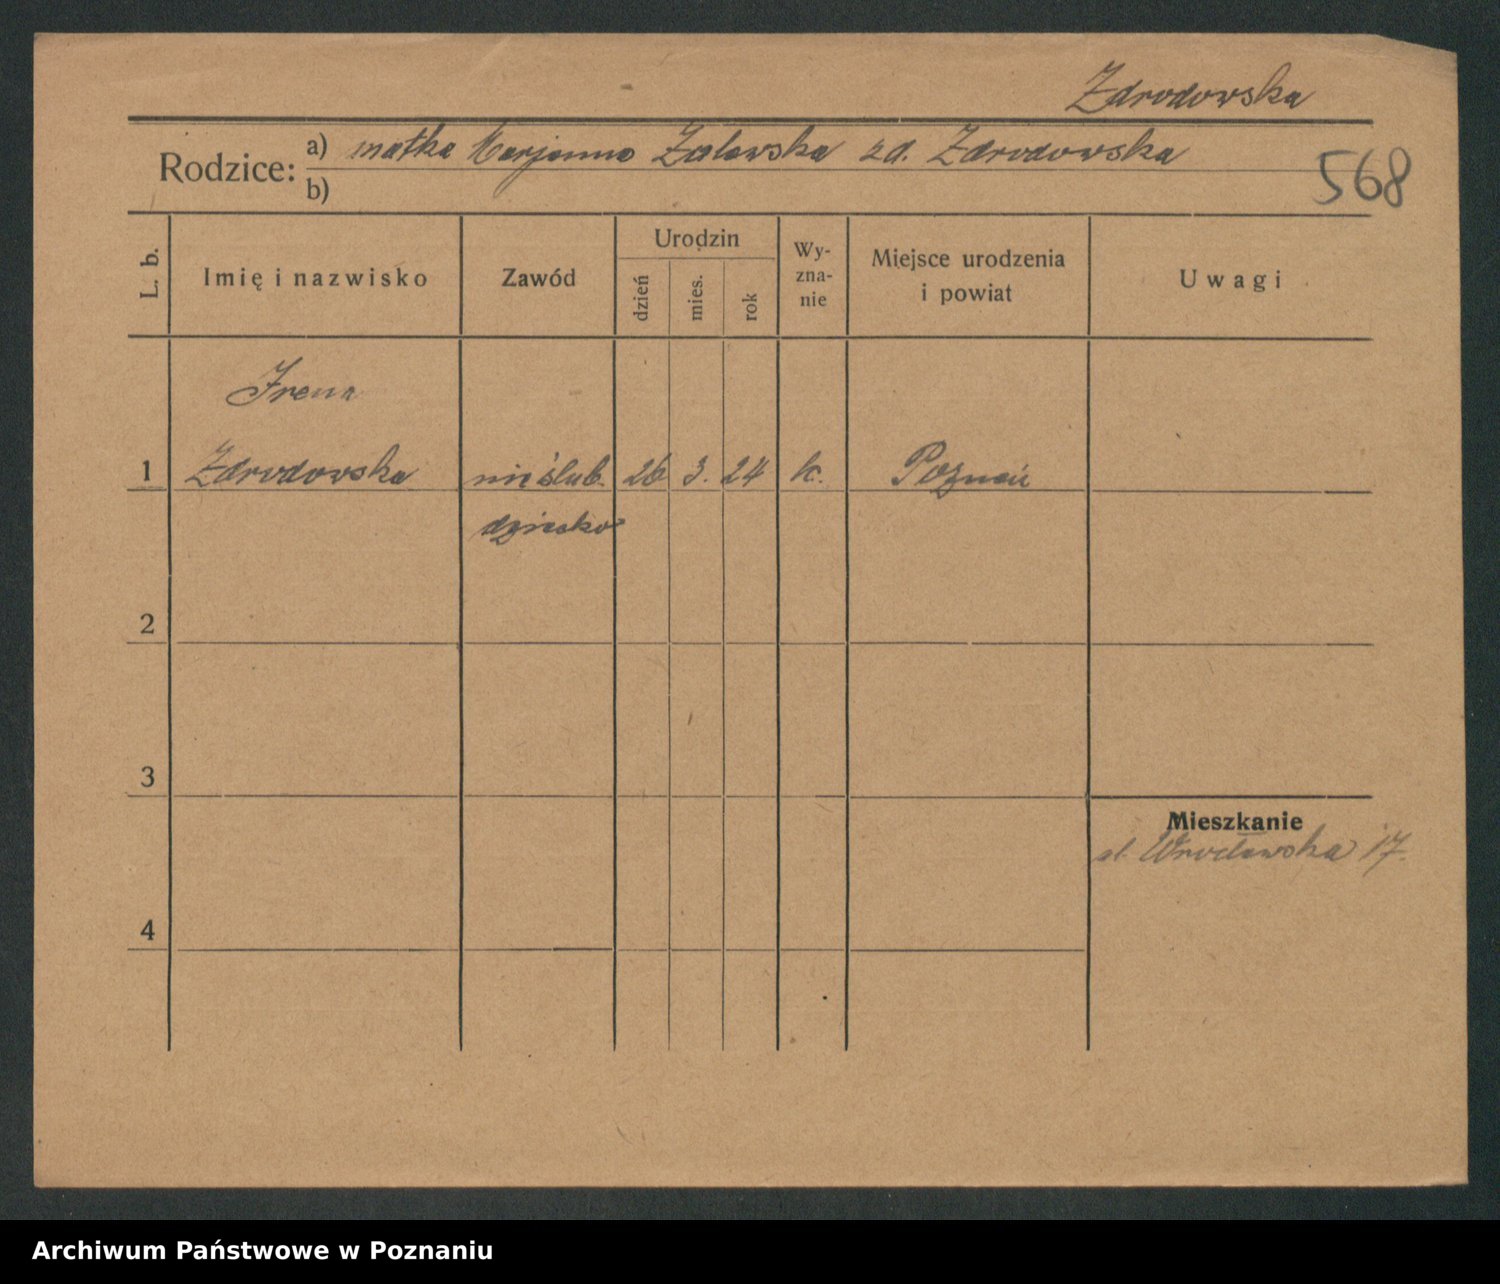 Zdrodowska
Rodzice: a) matka Marjanna Zalewska zd. Zdrodowska
b)
568
L. b.
Imię i nazwisko
Zawód
Urodzin
dzień
mies.
rok
Wy-
zna-
nie
Miejsce urodzenia
i powiat
Uwagi
Irena
1 Zdrodowska nieślub. 26 3. 24 k. Poznań
dziecko
2
3
Mieszkanie
ul. Wrocławska 17.
4
Archiwum Państwowe w Poznaniu